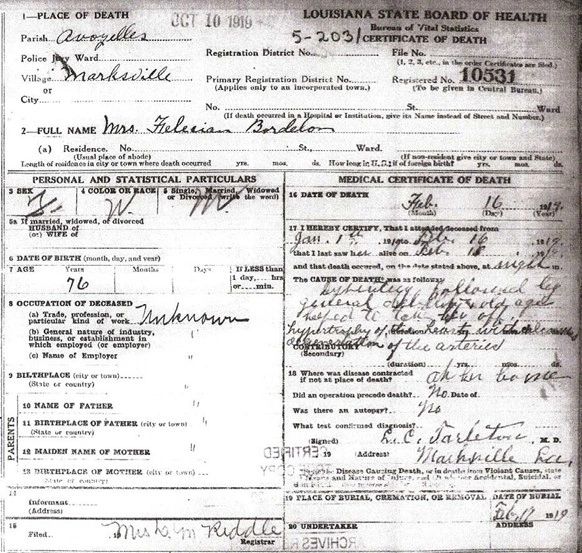 1—PLACE OF DEATH
OCT 10 1919
LOUISIANA STATE BOARD OF HEALTH
Bureau of Vital Statistics
Parish Avoyelles
5-2031
CERTIFICATE OF DEATH
Police Jury Ward
Registration District No.
File No.
(1, 2, 3, etc., in the order Certificates are filed.)
Village Marksville
Primary Registration District No.
Registered No. 10531
or
(Applies only to an incorporated town.)
(To be given in Central Bureau.)
City
No. St., Ward
(If death occurred in a Hospital or Institution, give its Name instead of Street and Number.)
2—FULL NAME Mrs. Felesian Bordelon
(a) Residence. No. St., Ward.
(Usual place of abode) (If non-resident give city or town and State)
Length of residence in city or town where death occurred yrs. mos. ds. How long in U.S. if of foreign birth? yrs. mos. ds.
PERSONAL AND STATISTICAL PARTICULARS
3 SEX 4 COLOR OR RACE 5 Single, Married, Widowed
or Divorced (write the word)
F. W. M
5a If married, widowed, or divorced
HUSBAND of
(or) WIFE of
6 DATE OF BIRTH (month, day, and year)
7 AGE Years Months Days If LESS than
1 day, hrs.
or min.
76
8 OCCUPATION OF DECEASED
(a) Trade, profession, or
particular kind of work Unknown
(b) General nature of industry,
business, or establishment in
which employed (or employer) "
(c) Name of Employer "
9 BIRTHPLACE (city or town) "
(State or country)
PARENTS
10 NAME OF FATHER "
11 BIRTHPLACE OF FATHER (city or town) "
(State or country)
12 MAIDEN NAME OF MOTHER "
13 BIRTHPLACE OF MOTHER (city or town) "
(State or country)
14
Informant
(Address)
15
Filed 19 Riddle
Registrar
MEDICAL CERTIFICATE OF DEATH
16 DATE OF DEATH Feb. 16 1919.
(Month) (Day) (Year)
17 I HEREBY CERTIFY, That I attended deceased from
Jan. 1st 1919 to Feb. 16 1919
that I last saw her alive on Feb. 15 1919
and that death occurred, on the date stated above, at night m.
The CAUSE OF DEATH was as follows:
followed by
general old age
helped to take her off
hypertrophy of the heart with
degeneration of the arteries
CONTRIBUTORY
(Secondary)
(duration) yrs. mos. ds.
18 Where was disease contracted
if not at place of death? at her home
Did an operation precede death? No Date of
Was there an autopsy? No
What test confirmed diagnosis?
(Signed) L. C. Tarleton M. D.
19 (Address) Marksville La.
Disease Causing Death, or in deaths from Violent Causes, state
Means and Nature of Injury, and Whether Accidental, Suicidal, or
19 PLACE OF BURIAL, CREMATION, OR REMOVAL DATE OF BURIAL
Feb. 17 1919
20 UNDERTAKER ADDRESS
CERTIFIED
COPY
ARCHIVES